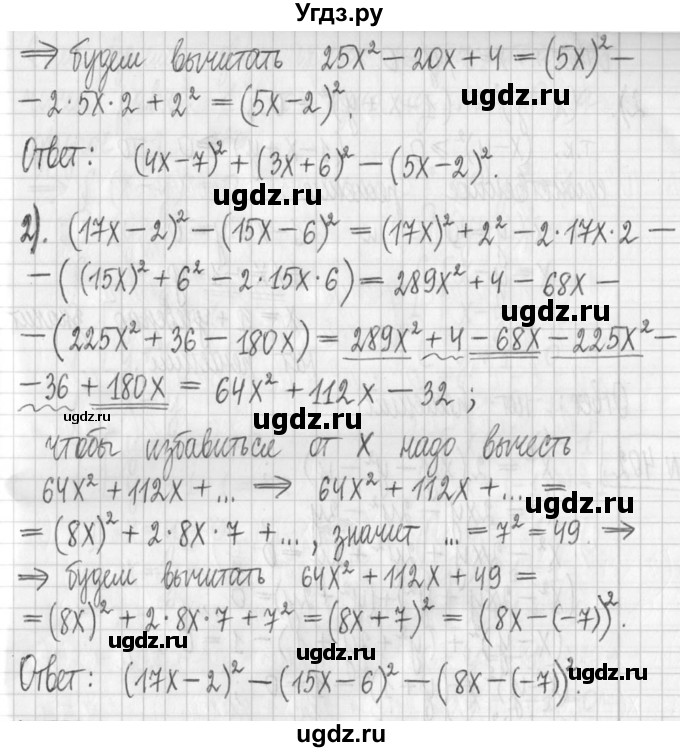 Угдз.ру
⇒ будем вычитать 25x² − 20x + 4 = (5x)² −
ugdz.ru
− 2·5x·2 + 2² = (5x−2)².
Ответ: (4x−7)² + (3x+6)² − (5x−2)².
ugdz.ru
2). (17x−2)² − (15x−6)² = (17x)² + 2² − 2·17x·2 −
− ((15x)² + 6² − 2·15x·6) = 289x² + 4 − 68x −
ugdz.ru
− (225x² + 36 − 180x) = 289x² + 4 − 68x − 225x² −
− 36 + 180x = 64x² + 112x − 32 ;
ugdz.ru
ugdz.ru
чтобы избавиться от x надо вычесть
64x² + 112x + ... ⇒ 64x² + 112x + ... =
ugdz.ru
= (8x)² + 2·8x·7 + ... , значит ... = 7² = 49 ⇒
⇒ будем вычитать 64x² + 112x + 49 =
= (8x)² + 2·8x·7 + 7² = (8x+7)² = (8x−(−7))².
ugdz.ru
ugdz.ru
Ответ: (17x−2)² − (15x−6)² − (8x−(−7))².
ugdz.ru
ugdz.ru